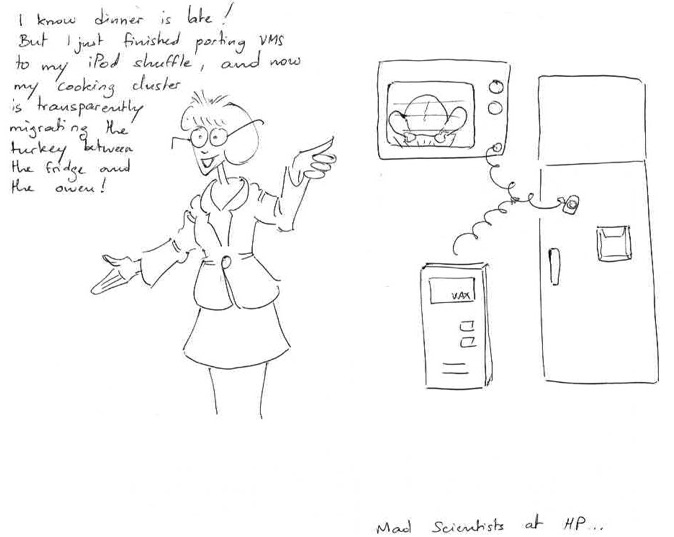 I know dinner is late!
But I just finished porting VMS
to my iPod shuffle, and now
my cooking cluster
is transparently
migrating the
turkey between
the fridge and
the owen!
VAX
Mad Scientists at HP...